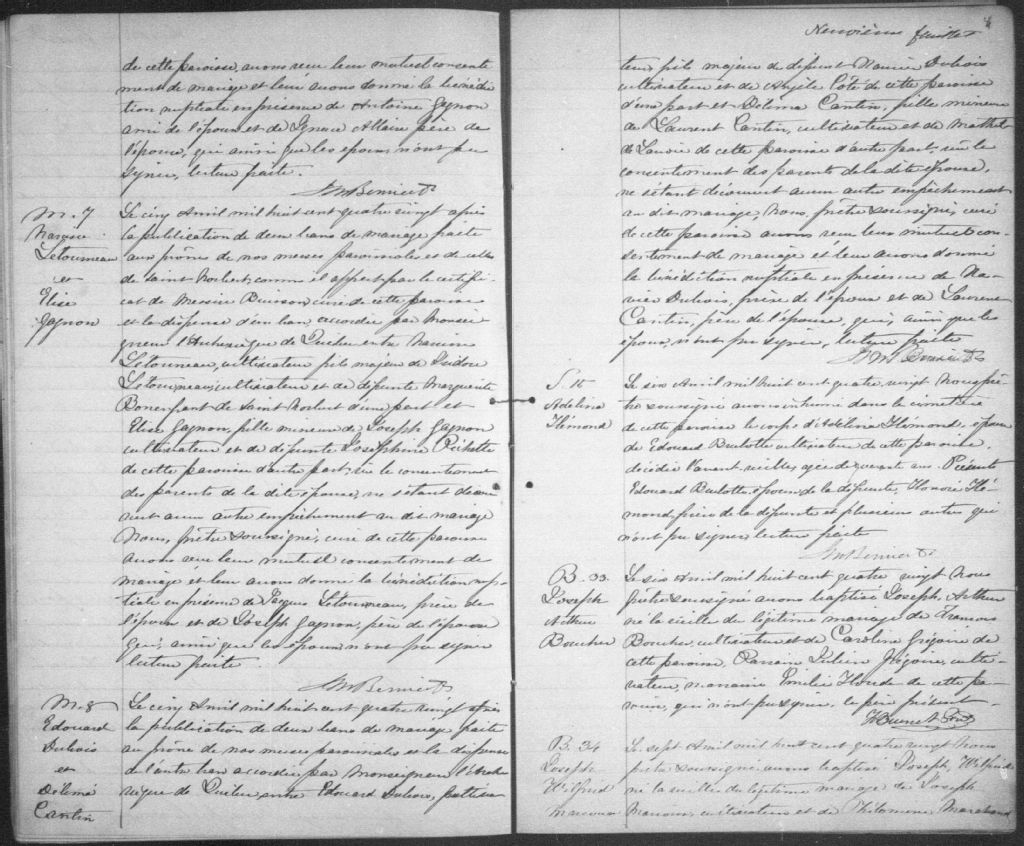 de cette paroisse, avons reçu leur mutuel consente
ment de mariage et leur avons donné la bénédic
tion nuptiale en présence de Antoine Gagnon
ami de l'époux et de Ignace Allaire père de
l'épouse, qui ainsi que les époux n'ont pu
signer, lecture faite.
M. 7
Narcisse
Letourneau
et
Elise
Gagnon
Le cinq Avril mil huit cent quatre vingt après
la publication de deux bans de mariage faite
aux prônes de nos messes paroissiales et de celles
de Saint Norbert, comme il appert par le certifi
cat de Messire curé de cette paroisse
et la dispense d'un ban accordée par Monsei
gneur l'Archevêque de Québec entre Narcisse
Letourneau, cultivateur fils majeur de Isidore
Letourneau, cultivateur et de défunte Marguerite
Bonenfant de Saint Norbert d'une part et
Elise Gagnon, fille mineure de Joseph Gagnon
cultivateur et de défunte Josephine
de cette paroisse d'autre part, sur le consentement
des parents de la dite épouse, ne s'étant décou
vert aucun autre empêchement au dit mariage
Nous, prêtre soussigné, curé de cette paroisse
avons reçu leur mutuel consentement de
mariage et leur avons donné la bénédiction nup-
tiale en présence de Jacques Letourneau, père de
l'époux et de Joseph Gagnon, père de l'épouse
qui, ainsi que les époux n'ont pu signer
lecture faite
M. 8
Edouard
Dubois
et
Délima
Cantin
Le cinq Avril mil huit cent quatre vingt après
la publication de deux bans de mariage faite
au prône de nos messes paroissiales et la dispense
de l'autre ban accordée par Monseigneur l'Arche
vêque de Québec, entre Edouard Dubois, cultiva
Neuvième feuillet
teur, fils majeur de défunt Dubois
cultivateur et de Angèle Côté de cette paroisse
d'une part et Délima Cantin, fille mineure
de Laurent Cantin, cultivateur et de
de cette paroisse d'autre part, sur le
consentement des parents de la dite épouse,
ne s'étant découvert aucun autre empêchement
au dit mariage, Nous, prêtre soussigné, curé
de cette paroisse avons reçu leur mutuel con-
sentement de mariage et leur avons donné
la bénédiction nuptiale en présence de
Dubois, frère de l'époux et de Laurent
Cantin, père de l'épouse, qui, ainsi que les
époux, n'ont pu signer, lecture faite
S. 15
Adelina
Hémond
Le six Avril mil huit cent quatre vingt Nous prê
tre soussigné avons inhumé dans le cimetière
de cette paroisse le corps d'Adelina Hémond, épouse
de Edouard Barlotte cultivateur de cette paroisse,
décédée l'avant veille, agée de ans. Présents
Edouard Barlotte époux de la défunte, Honoré Hé
mond, frère de la défunte et plusieurs autres qui
n'ont pu signer lecture faite
B. 33
Joseph
Arthur
Boucher
Le six Avril mil huit cent quatre vingt Nous
prêtre soussigné avons baptisé Joseph, Arthur
né la veille du légitime mariage de François
Boucher, cultivateur et de Caroline Grégoire de
cette paroisse, Parrain Julien Grégoire, culti-
vateur, marraine Emilie Houde de cette pa-
roisse, qui n'ont pu signer, le père présent
B. 34
Joseph
Wilfrid
Le sept Avril mil huit cent quatre vingt Nous
prêtre soussigné avons baptisé Joseph, Wilfrid
né la veille du légitime mariage de Joseph
cultivateur et de Philomène Marchand